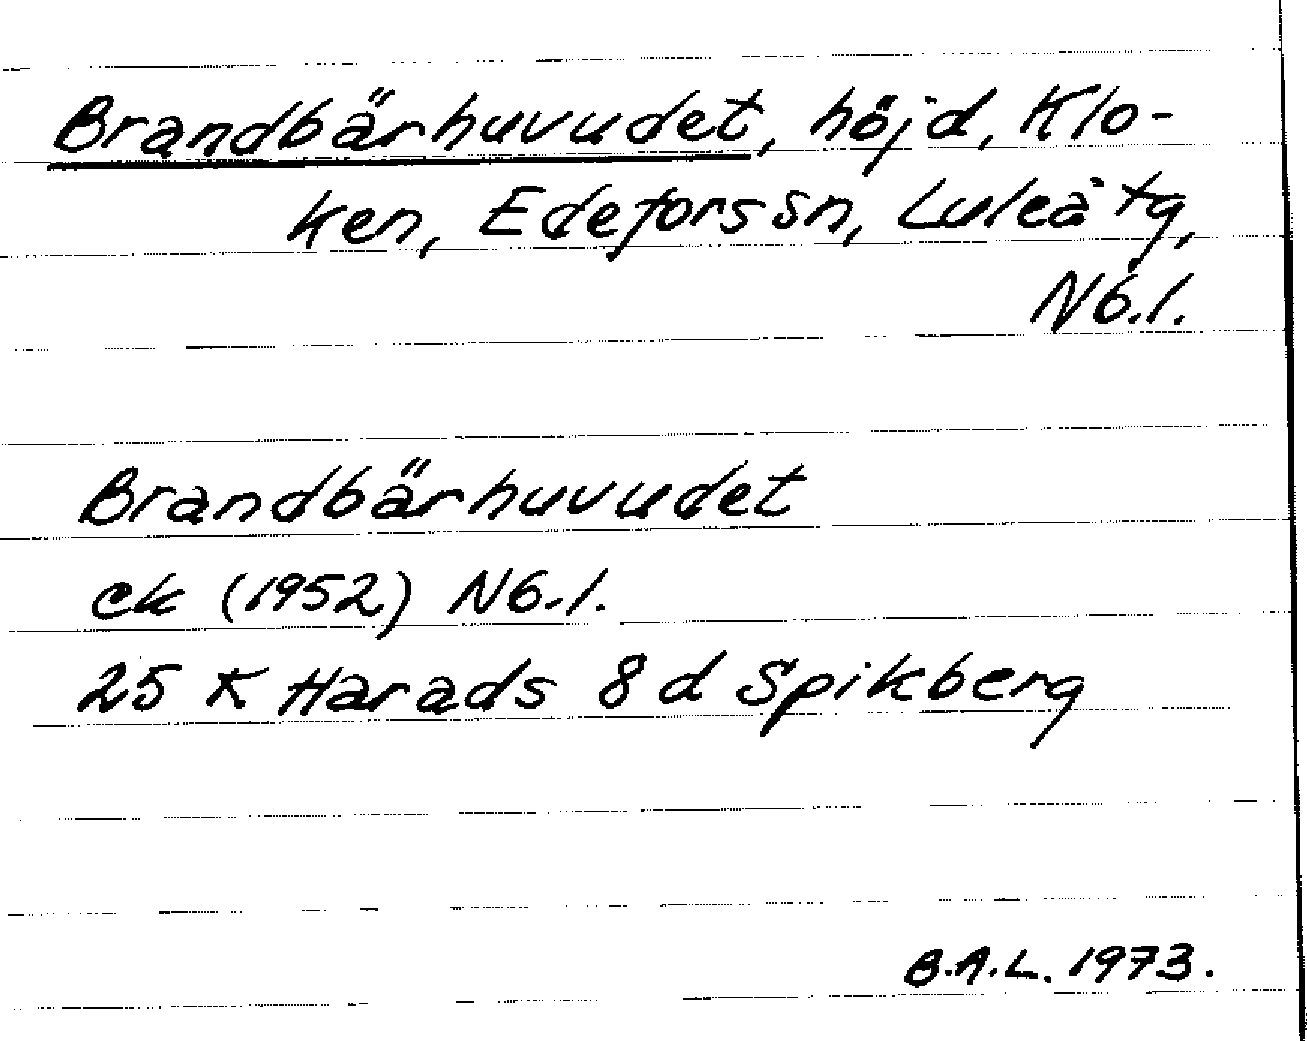 Brandbärhuvudet, höjd, Klo-
ken, Edeforssn, Luleå tg,
Nb.l.
Brandbärhuvudet
ek (1952) Nb.l.
25 K Harads 8 d Spikberg
B.A.L. 1973.